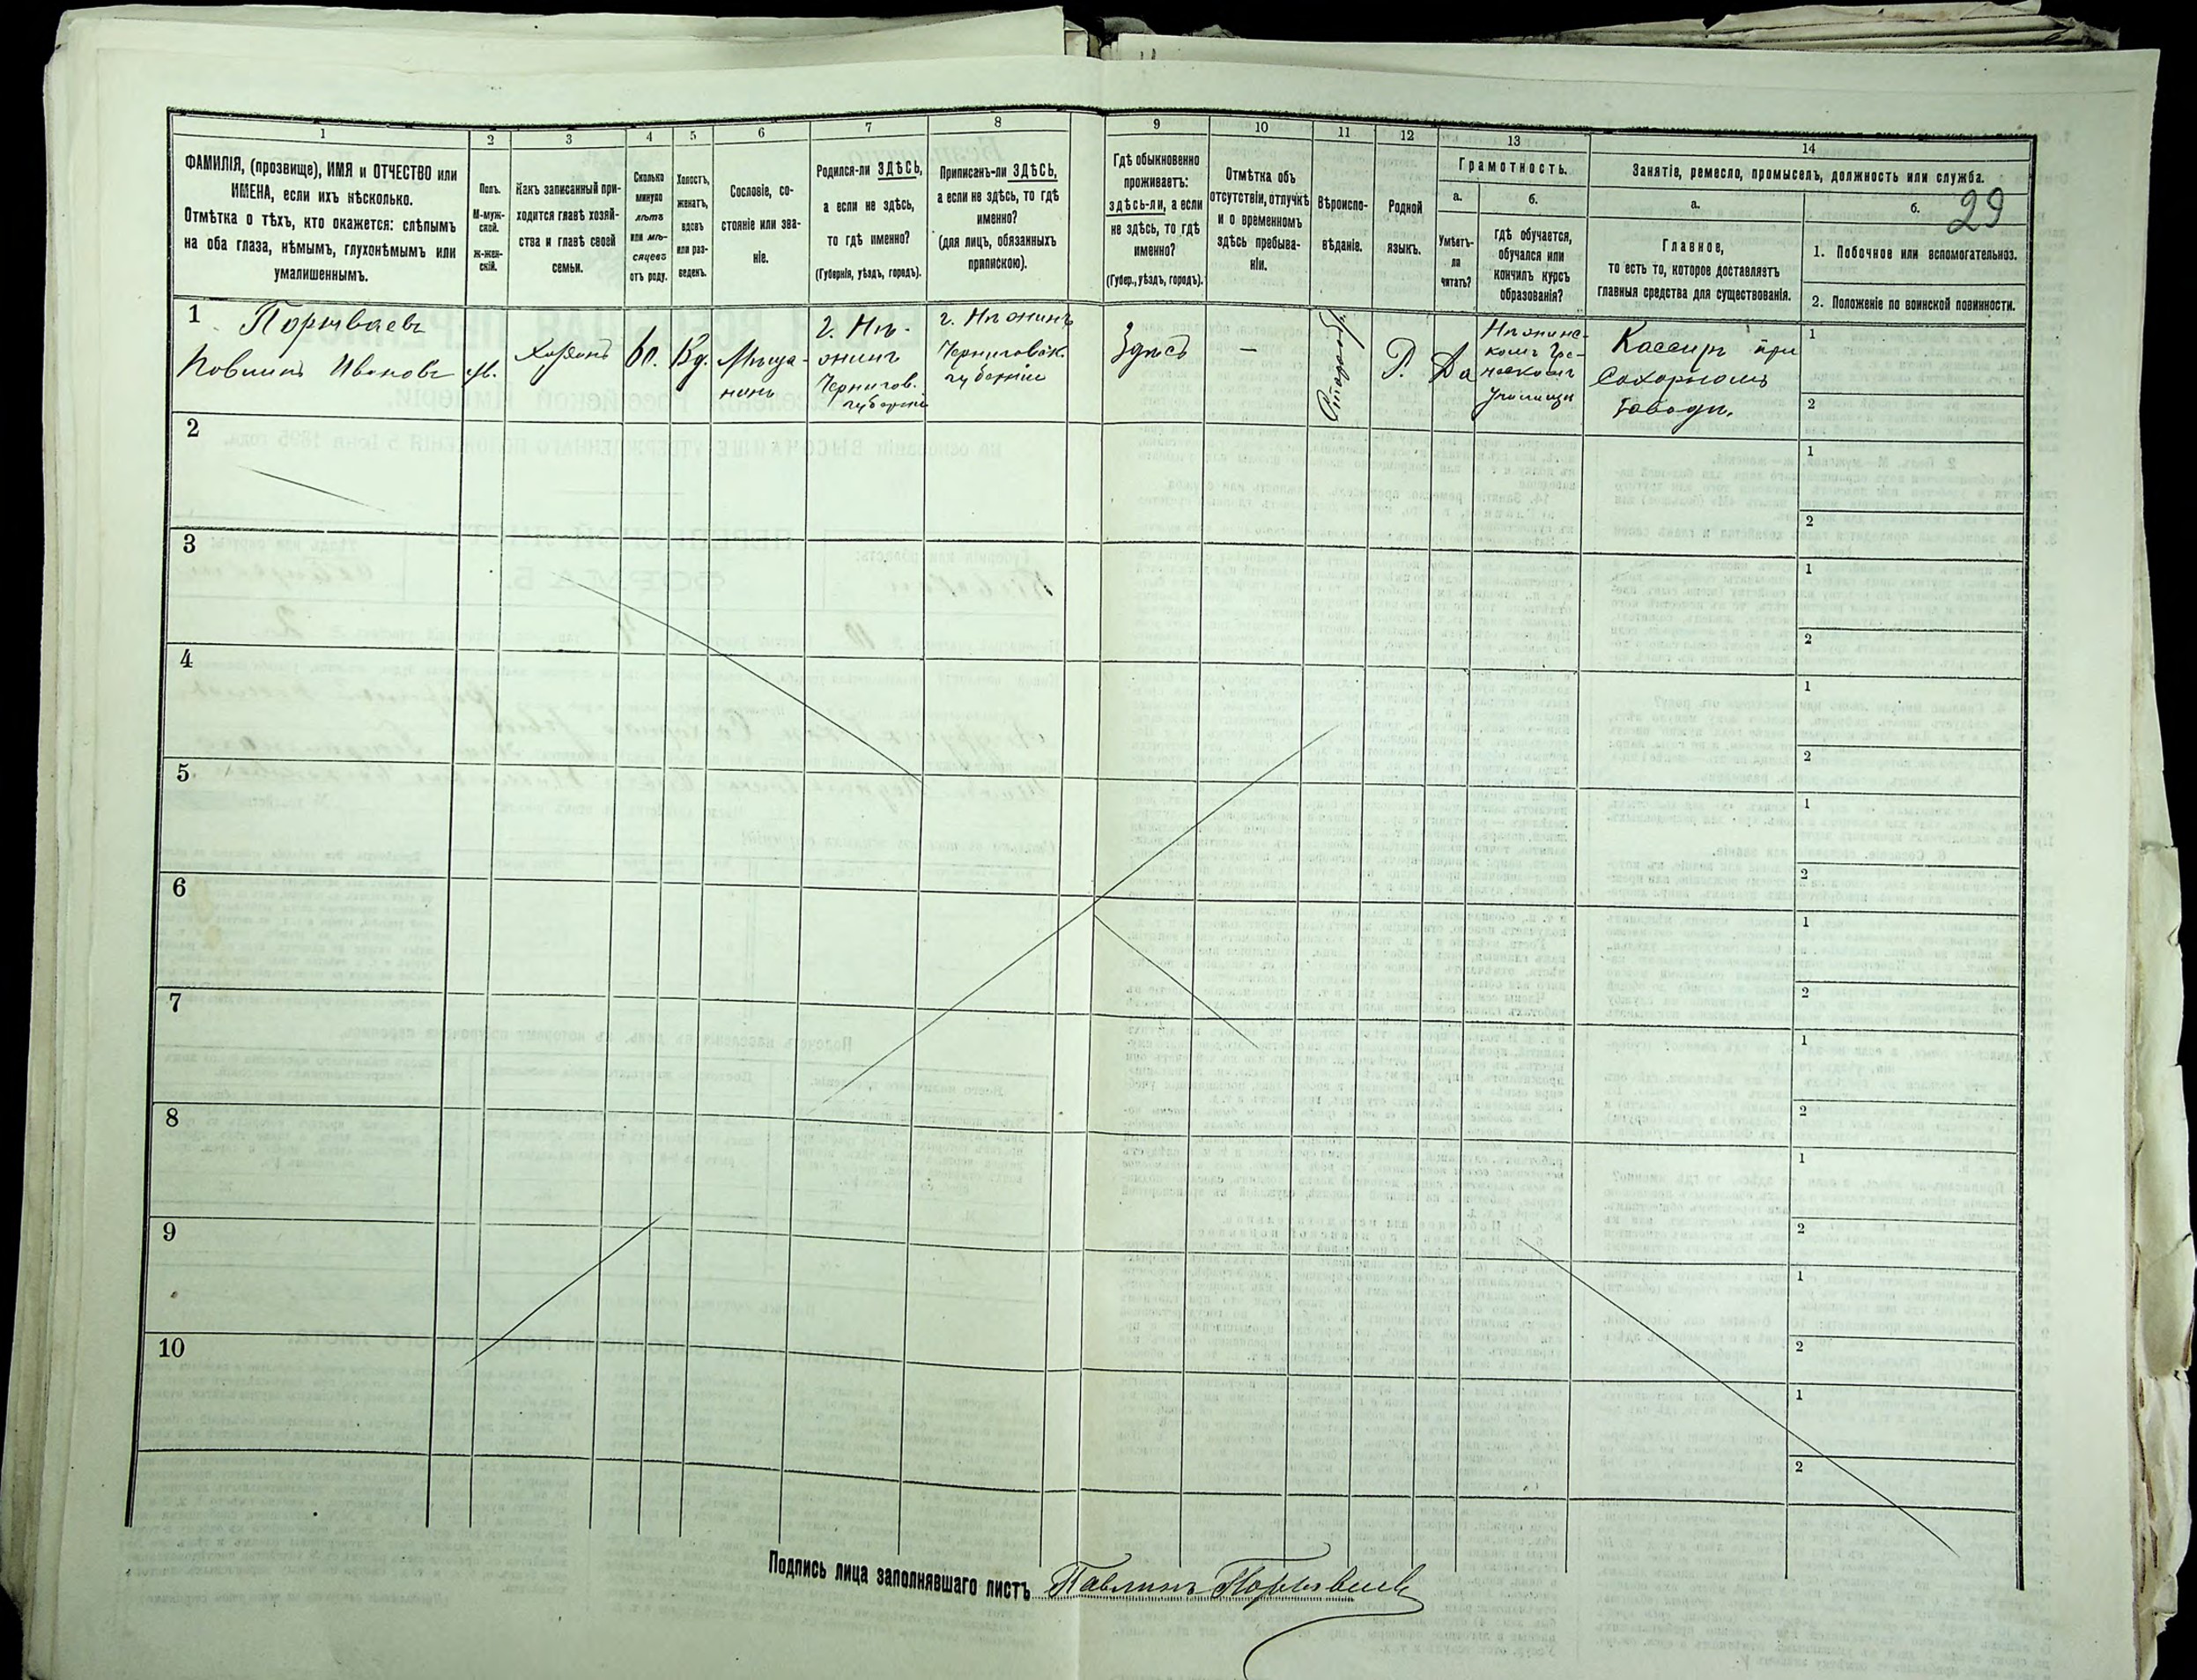 1 2 3 4 5 6 7 8 9 10 11 12 13 14
29
ФАМИЛІЯ, (прозвище), ИМЯ и ОТЧЕСТВО или
ИМЕНА, если ихъ нѣсколько.
Отмѣтка о тѣхъ, кто окажется: слѣпымъ
на оба глаза, нѣмымъ, глухонѣмымъ или
умалишеннымъ.
Полъ.
М-муж-
ской.
Ж-жен-
скій.
Какъ записанный при-
ходится главѣ хозяй-
ства и главѣ своей
семьи.
Сколько
минуло
лѣтъ
или мѣ-
сяцевъ
отъ роду.
Холостъ,
женатъ,
вдовъ
или раз-
веденъ.
Сословіе, со-
стояніе или зва-
ніе.
Родился-ли ЗДѢСЬ,
а если не здѣсь,
то гдѣ именно?
(Губернія, уѣздъ, городъ).
Приписанъ-ли ЗДѢСЬ,
а если не здѣсь, то гдѣ
именно?
(для лицъ, обязанныхъ
припискою).
Гдѣ обыкновенно
проживаетъ:
здѣсь-ли, а если
не здѣсь, то гдѣ
именно?
(Губер., уѣздъ, городъ).
Отмѣтка объ
отсутствіи, отлучкѣ
и о временномъ
здѣсь пребыва-
ніи.
Вѣроиспо-
вѣданіе.
Родной
языкъ.
Грамотность.
а.
Умѣетъ-
ли
читать?
б.
гдѣ обучается,
обучался или
кончилъ курсъ
образованія?
Занятіе, ремесло, промыселъ, должность или служба.
а.
Главное,
то есть то, которое доставляетъ
главныя средства для существованія.
б.
1. Побочное или вспомогательное.
2. Положеніе по воинской повинности.
1
Порываевъ
Павлинъ Ивановъ
М.
Хозяинъ
60.
Вд.
Мѣща-
нинъ
г. Нѣ-
жинъ
Чернигов.
губерніи
г. Нѣжинъ
Черниговск.
губерніи
Здѣсь
—
Р.
Да
Нѣжинс-
комъ Гре-
ческомъ
Училищѣ
Кассиръ при
Сахарномъ
Заводѣ.
1
2
2
1
2
3
1
2
4
1
2
5
1
2
6
1
2
7
1
2
8
1
2
9
1
2
10
1
2
Подпись лица заполнявшаго листъ Павлинъ Порываевъ